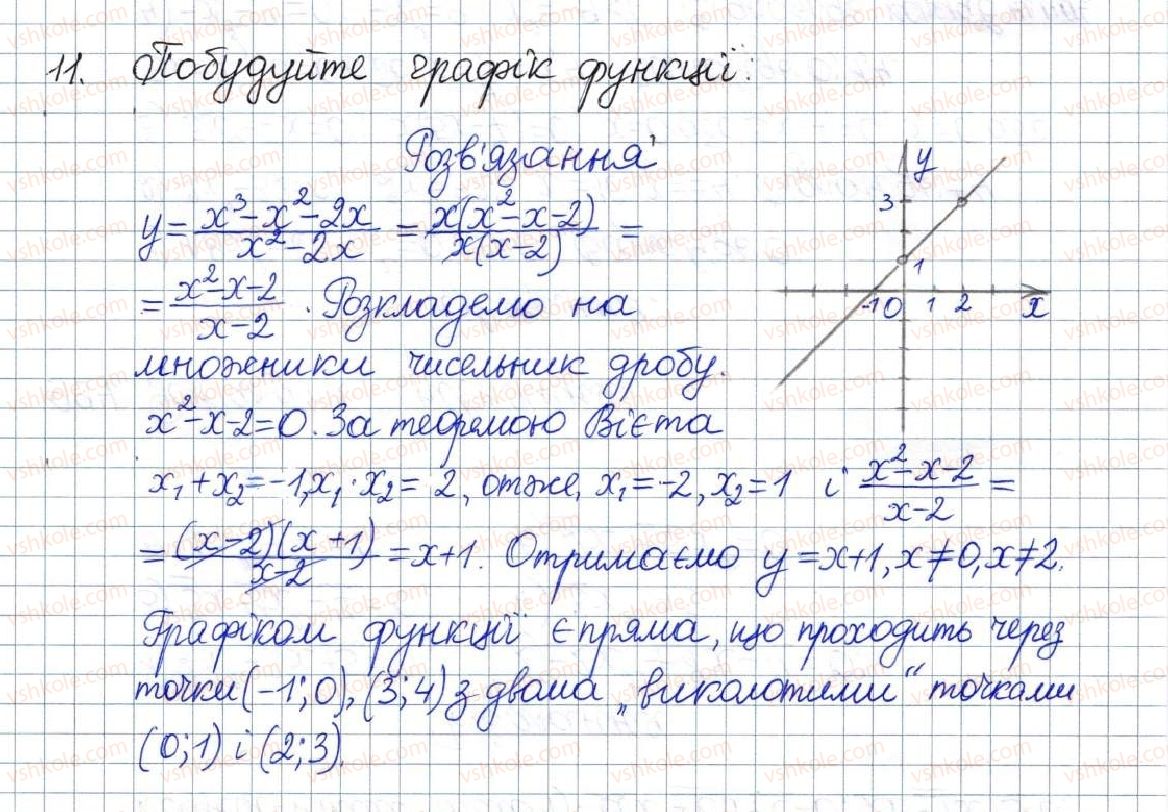 11. Побудуйте графік функції:
Розв'язання
y = (x³-x²-2x)/(x²-2x) = x(x²-x-2)/x(x-2) =
= (x²-x-2)/(x-2). Розкладемо на
множники чисельник дробу.
x²-x-2=0. За теоремою Вієта
x₁+x₂=-1, x₁·x₂= 2, отже, x₁=-2, x₂=1 і (x²-x-2)/(x-2) =
= (x-2)(x+1)/(x-2) = x+1. Отримаємо y=x+1, x≠0, x≠2.
Графіком функції є пряма, що проходить через
точки (-1;0), (3;4) з двома „виколотими“ точками
(0;1) і (2;3).
y
3
1
-1 0 1 2 x
vshkole.com